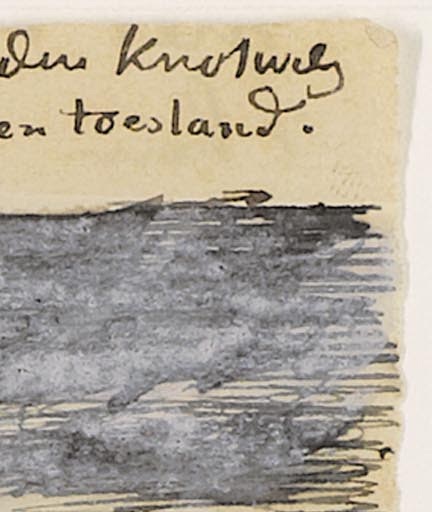 den Knotwilg
en toestand.